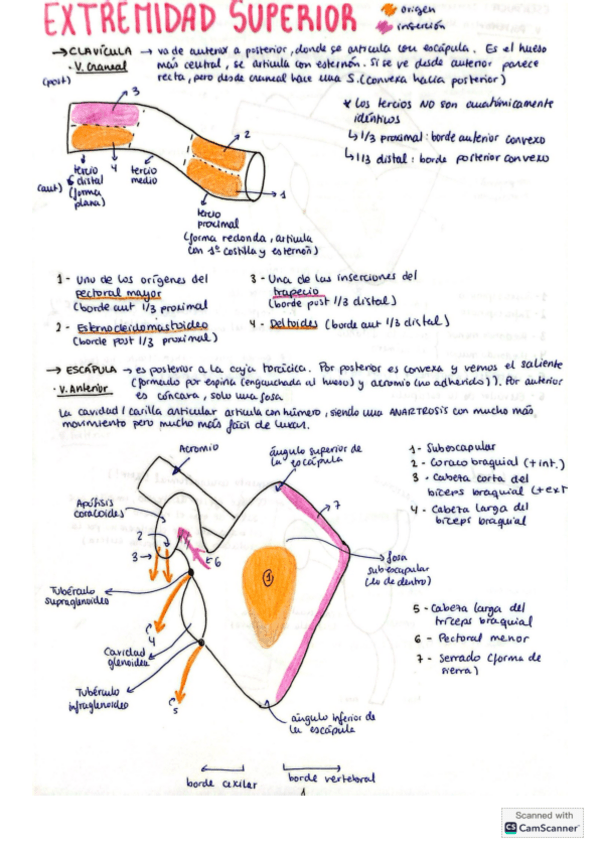 EXTREMIDAD SUPERIOR
origen
inserción
→ CLAVÍCULA → va de anterior a posterior, donde se articula con escápula. Es el hueso
· V. Craneal
más central, se articula con esternón. Si se ve desde anterior parece
recta, pero desde craneal hace una S. (convexa hacia posterior)
(post)
3
* Los tercios NO son anatómicamente
idénticos
↳ 1/3 proximal: borde anterior convexo
↳ 1/3 distal: borde posterior convexo
2
4
1
(ant)
tercio
distal
(forma
plana)
tercio
medio
tercio
proximal
(forma redonda, articula
con 1ª costilla y esternón)
1 - Uno de los orígenes del
pectoral mayor
(borde ant 1/3 proximal
2 - Esternocleidomastoideo
(borde post 1/3 proximal)
3 - Una de las inserciones del
trapecio
(borde post 1/3 distal)
4 - Deltoides (borde ant 1/3 distal)
→ ESCÁPULA → es posterior a la caja torácica. Por posterior es convexa y vemos el saliente
· V. Anterior
(formado por espina (enganchada al hueso) y acromio (no adherido)). Por anterior
es cóncava, solo una fosa
La cavidad / carilla articular articula con húmero, siendo una ANARTROSIS con mucho más
movimiento pero mucho más fácil de luxar.
Acromio
ángulo superior de
la escápula
7
Apófisis
coracoides
2
3
6
1
fosa
subescapular
(lo de dentro)
Tubérculo
supraglenoideo
4
Cavidad
glenoidea
Tubérculo
infraglenoideo
5
ángulo inferior de
la escápula
borde axilar
borde vertebral
1 - Subescapular
2 - Coraco braquial (+ int.)
3 - Cabeza corta del
bíceps braquial (+ ext
4 - Cabeza larga del
bíceps braquial
5 - Cabeza larga del
tríceps braquial
6 - Pectoral menor
7 - Serrado (forma de
sierra)
1
Scanned with
CS CamScanner